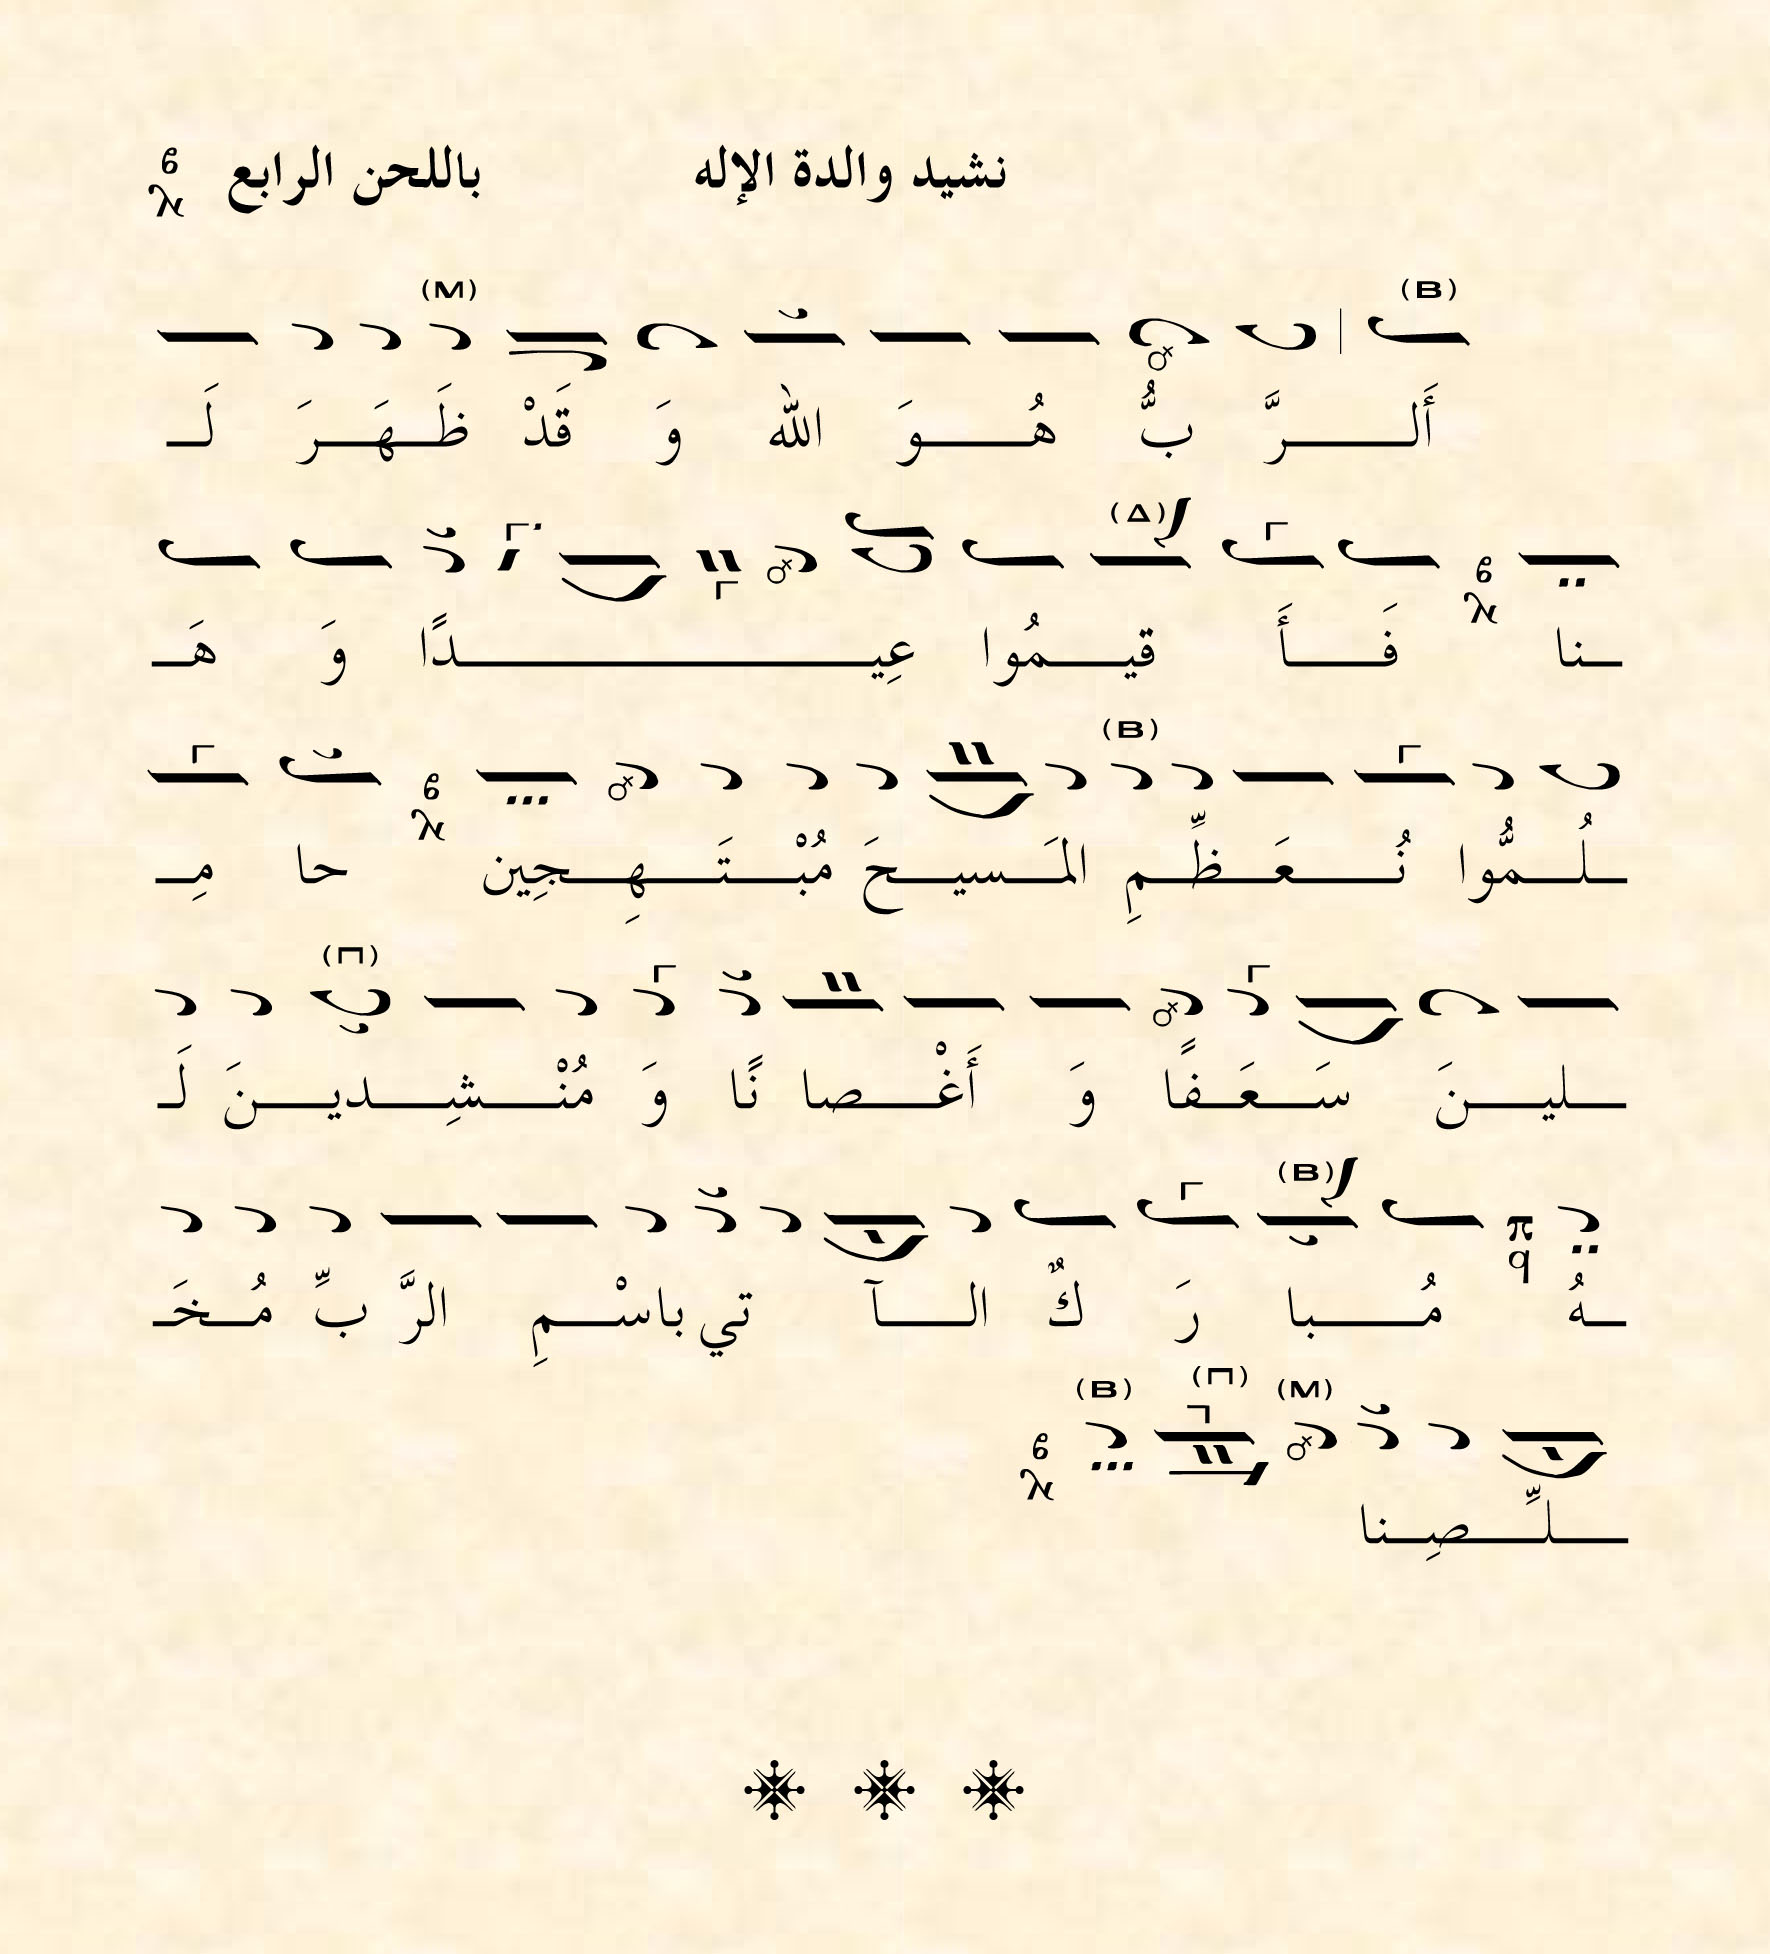 نشيد والدة الإله باللحن الرابع
أَلـــرَّ بُّ هُـــوَ الله وَ قَدْ ظَـهَـرَ لَـ
ـنا فَـــأَ قيـــمُوا عِيـــــدًا وَ هَـ
ـلُـــمُّوا نُـــعَـــظِّـــمِ المَـــسيـــحَ مُبْـــتَـــهِـــجِين حا مِـ
ـليـــنَ سَـــعَـــفًا وَ أَغْـــصا نًا وَ مُنْـــشِـــديـــنَ لَـ
ـهُ مُـــبا رَ كٌ الـــآ تي باسْـــمِ الرَّ بِّ مُـــخَـ
ـلِّـــصِـــنا